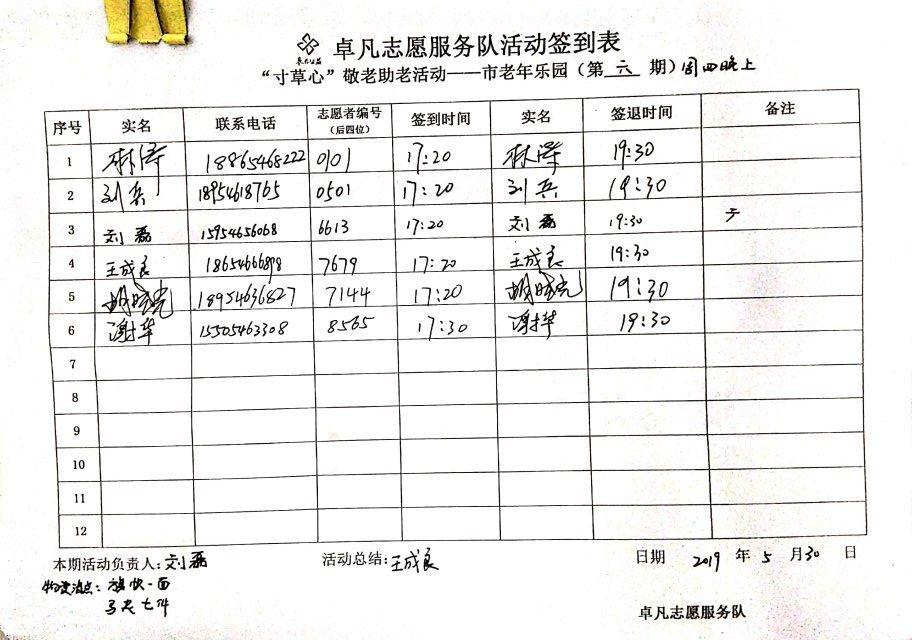 卓凡志愿服务队活动签到表
“寸草心”敬老助老活动——市老年乐园（第 六 期）周四晚上
序号 实名 联系电话 志愿者编号（后四位） 签到时间 实名 签退时间 备注
1 林泽 18865468222 0101 17:20 林泽 19:30
2 刘兵 18954618765 0501 17:20 刘兵 19:30
3 刘磊 15954656068 6613 17:20 刘磊 19:30
4 王成良 18654666898 7679 17:20 王成良 19:30
5 胡晓亮 18954636827 7144 17:20 胡晓亮 19:30
6 谢华 15505463308 8565 17:30 谢华 19:30
7
8
9
10
11
12
本期活动负责人：刘磊 活动总结：王成良 日期 2019 年 5 月 30 日
物资清点：旗帜一面
马夹七件
卓凡志愿服务队